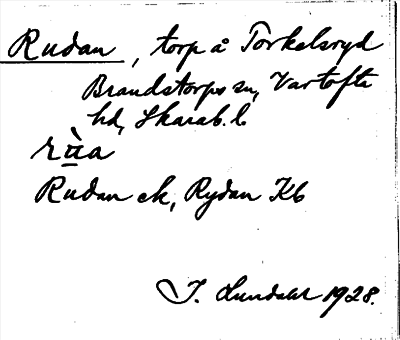 Rudan, torp å Torkelsryd
Brandstorps sn, Vartofta
hd, Skarab. l.
rùa
Rudan ek, Rydan Kb
I. Lundahl 1928.